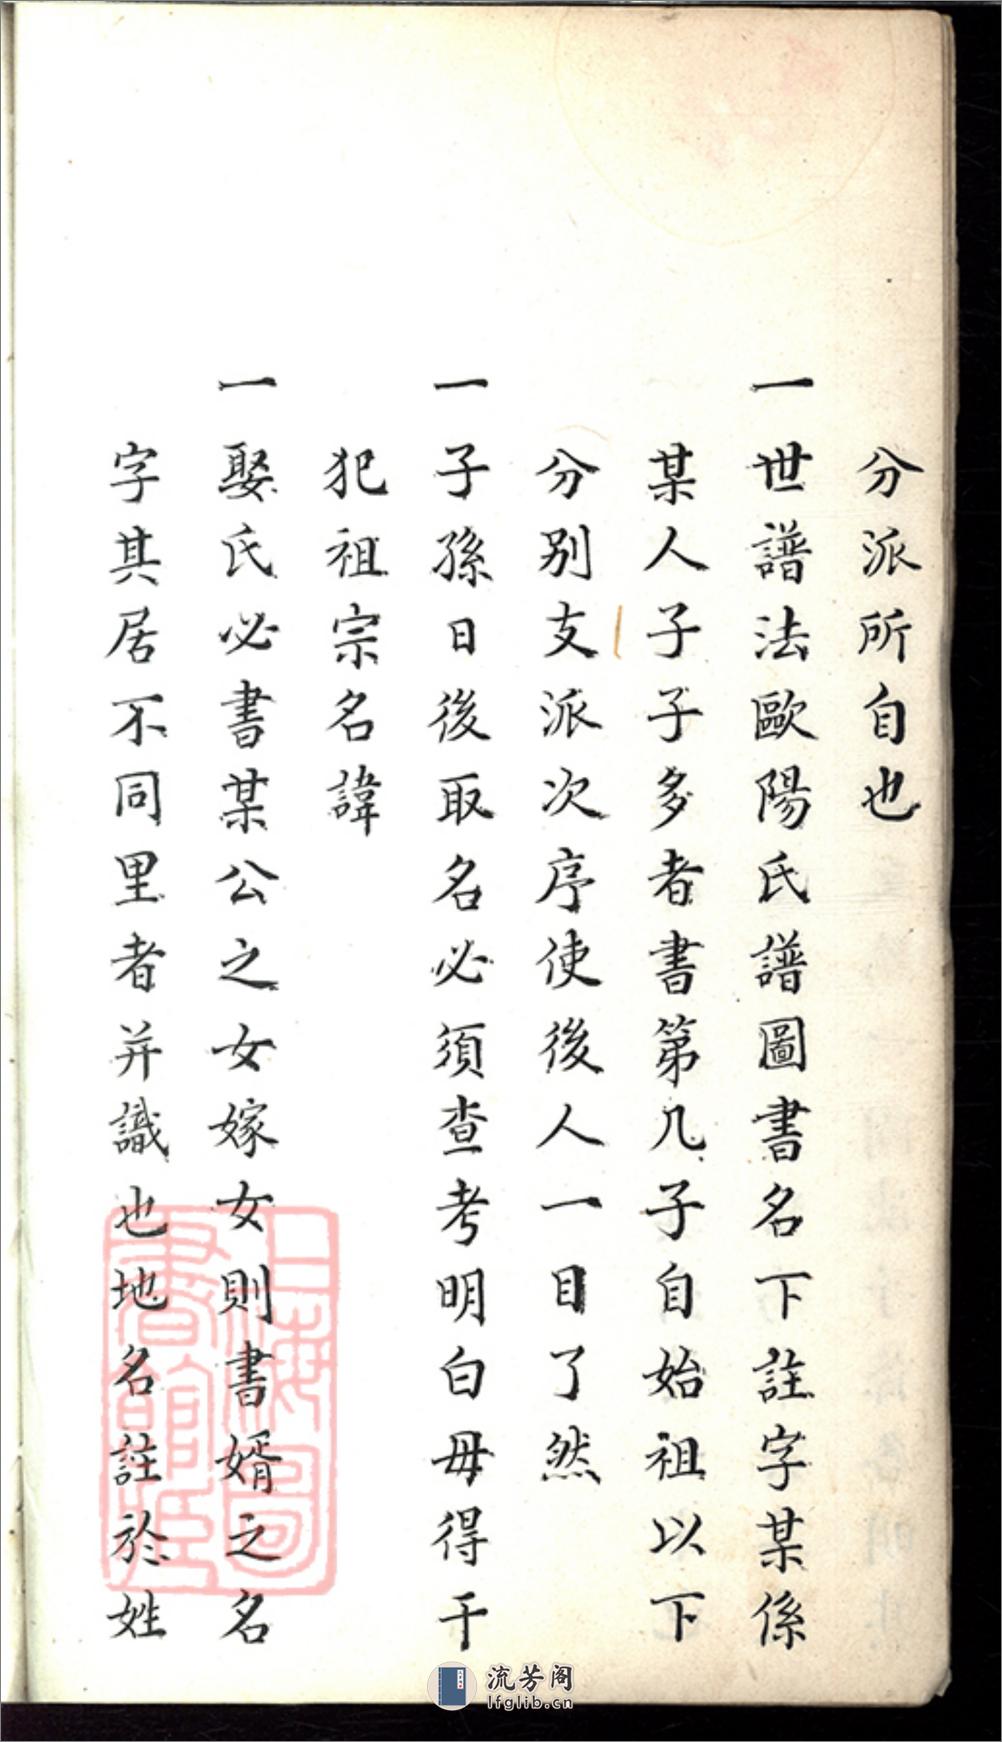 分派所自也
一世譜法歐陽氏譜圖書名下註字某係
某人子子多者書第几子自始祖以下
分别支派次序使後人一目了然
一子孫日後取名必須查考明白毋得干
犯祖宗名諱
一娶氏必書某公之女嫁女則書婿之名
字其居不同里者并識也地名註於姓
上海圖書館藏
流芳阁
lfglib.cn